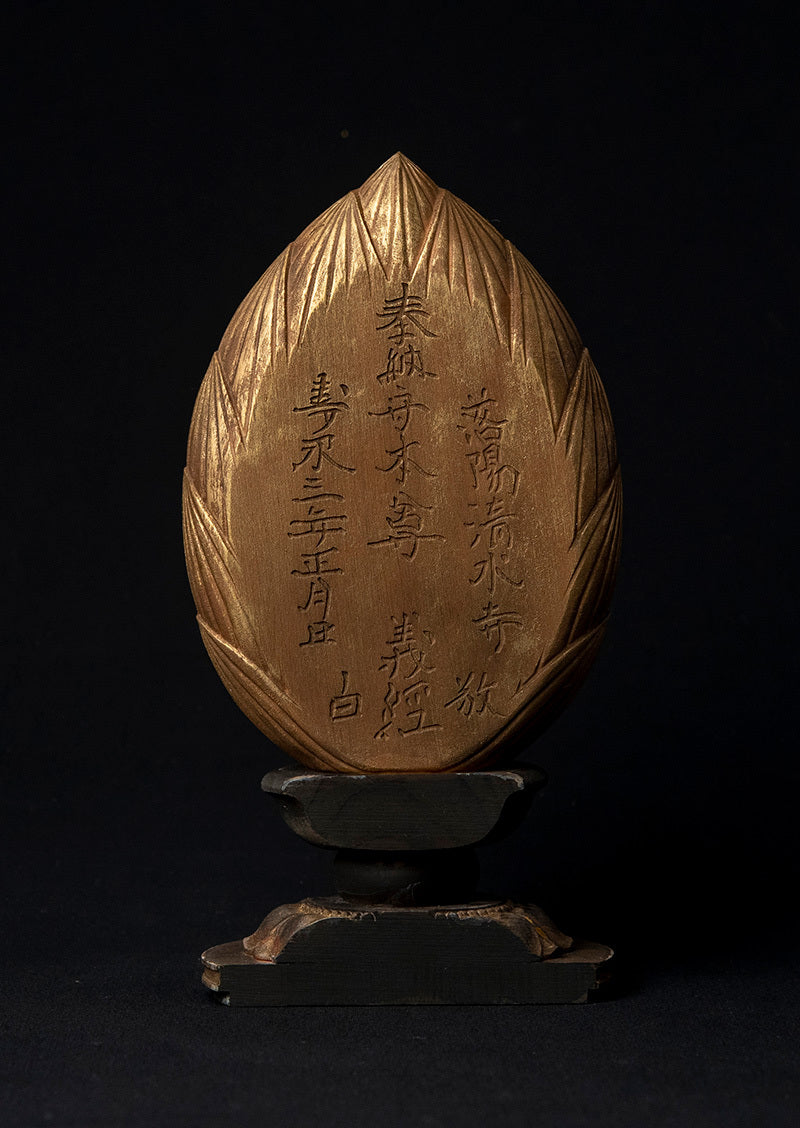 落陽清水寺 敬
奉納守本尊 義經
寿永三年正月日 白